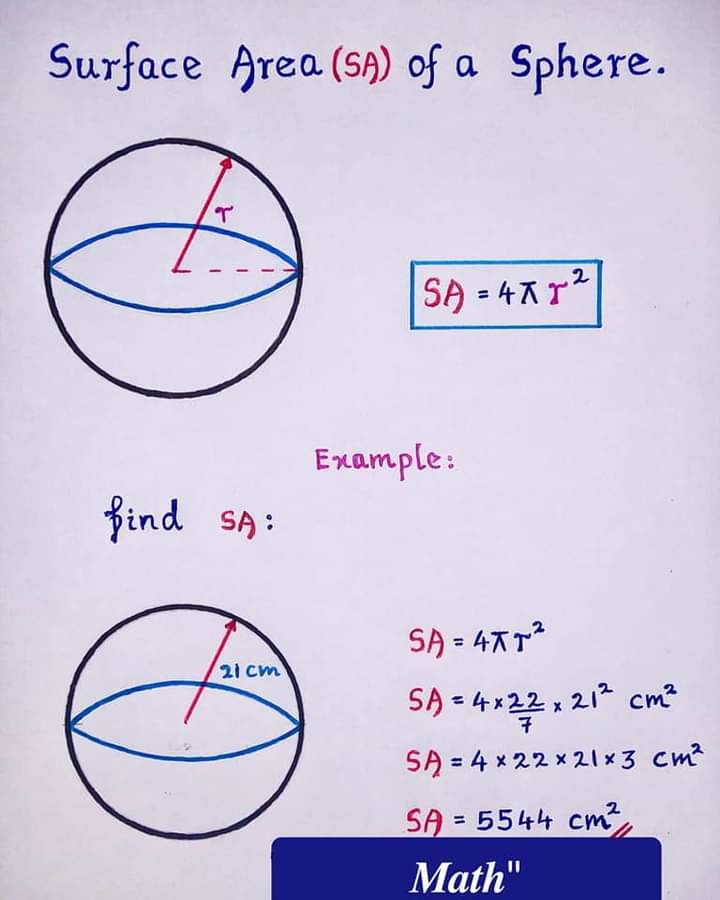 Surface Area (SA) of a Sphere.
r
SA = 4πr²
Example:
find SA:
21 cm
SA = 4πr²
SA = 4 × 22/7 × 21² cm²
SA = 4 × 22 × 21 × 3 cm²
SA = 5544 cm²
Math"